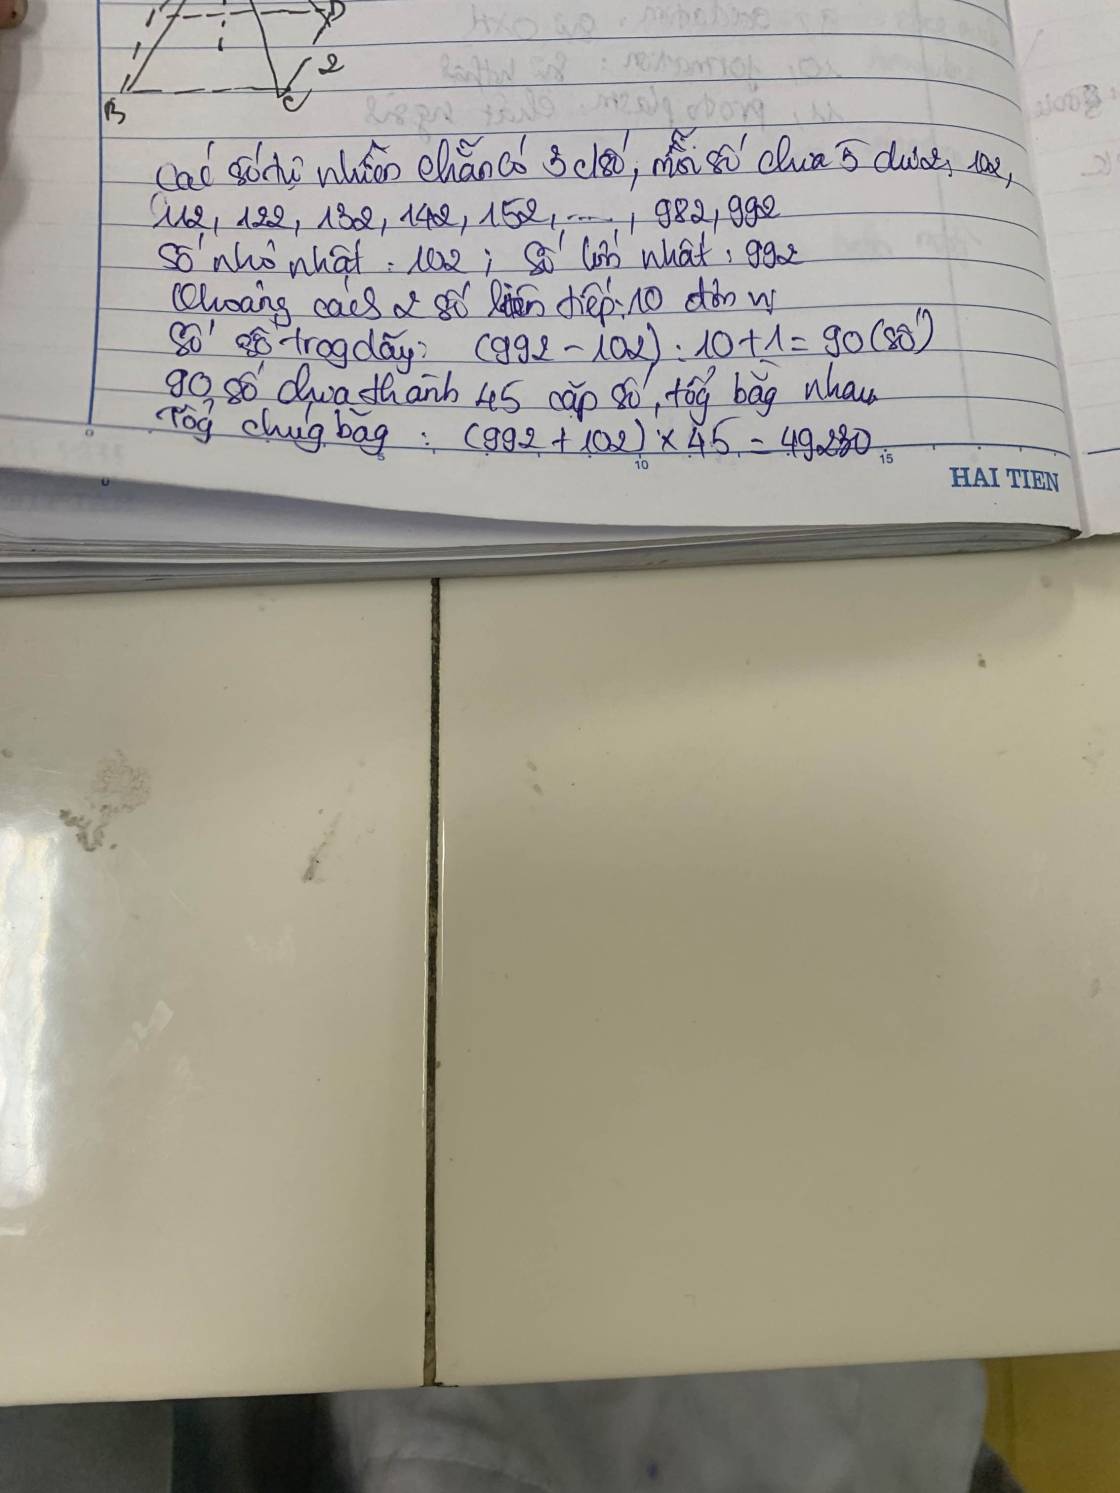 D
2
B
C
Các số tự nhiên chẵn có 3 c/số, mỗi số chia 5 dư 2, 102,
112, 122, 132, 142, 152, ...., 982, 992
Số nhỏ nhất : 102 ; Số lớn nhất : 992
Khoảng cách 2 số liên tiếp: 10 đơn vị
Số số trog dãy: (992 - 102) : 10 + 1 = 90 (số)
90 số chia thành 45 cặp số, tổg bằg nhau
Tổg chúg bằg : (992 + 102) x 45 = 49230
0 5 10 15
HAI TIEN